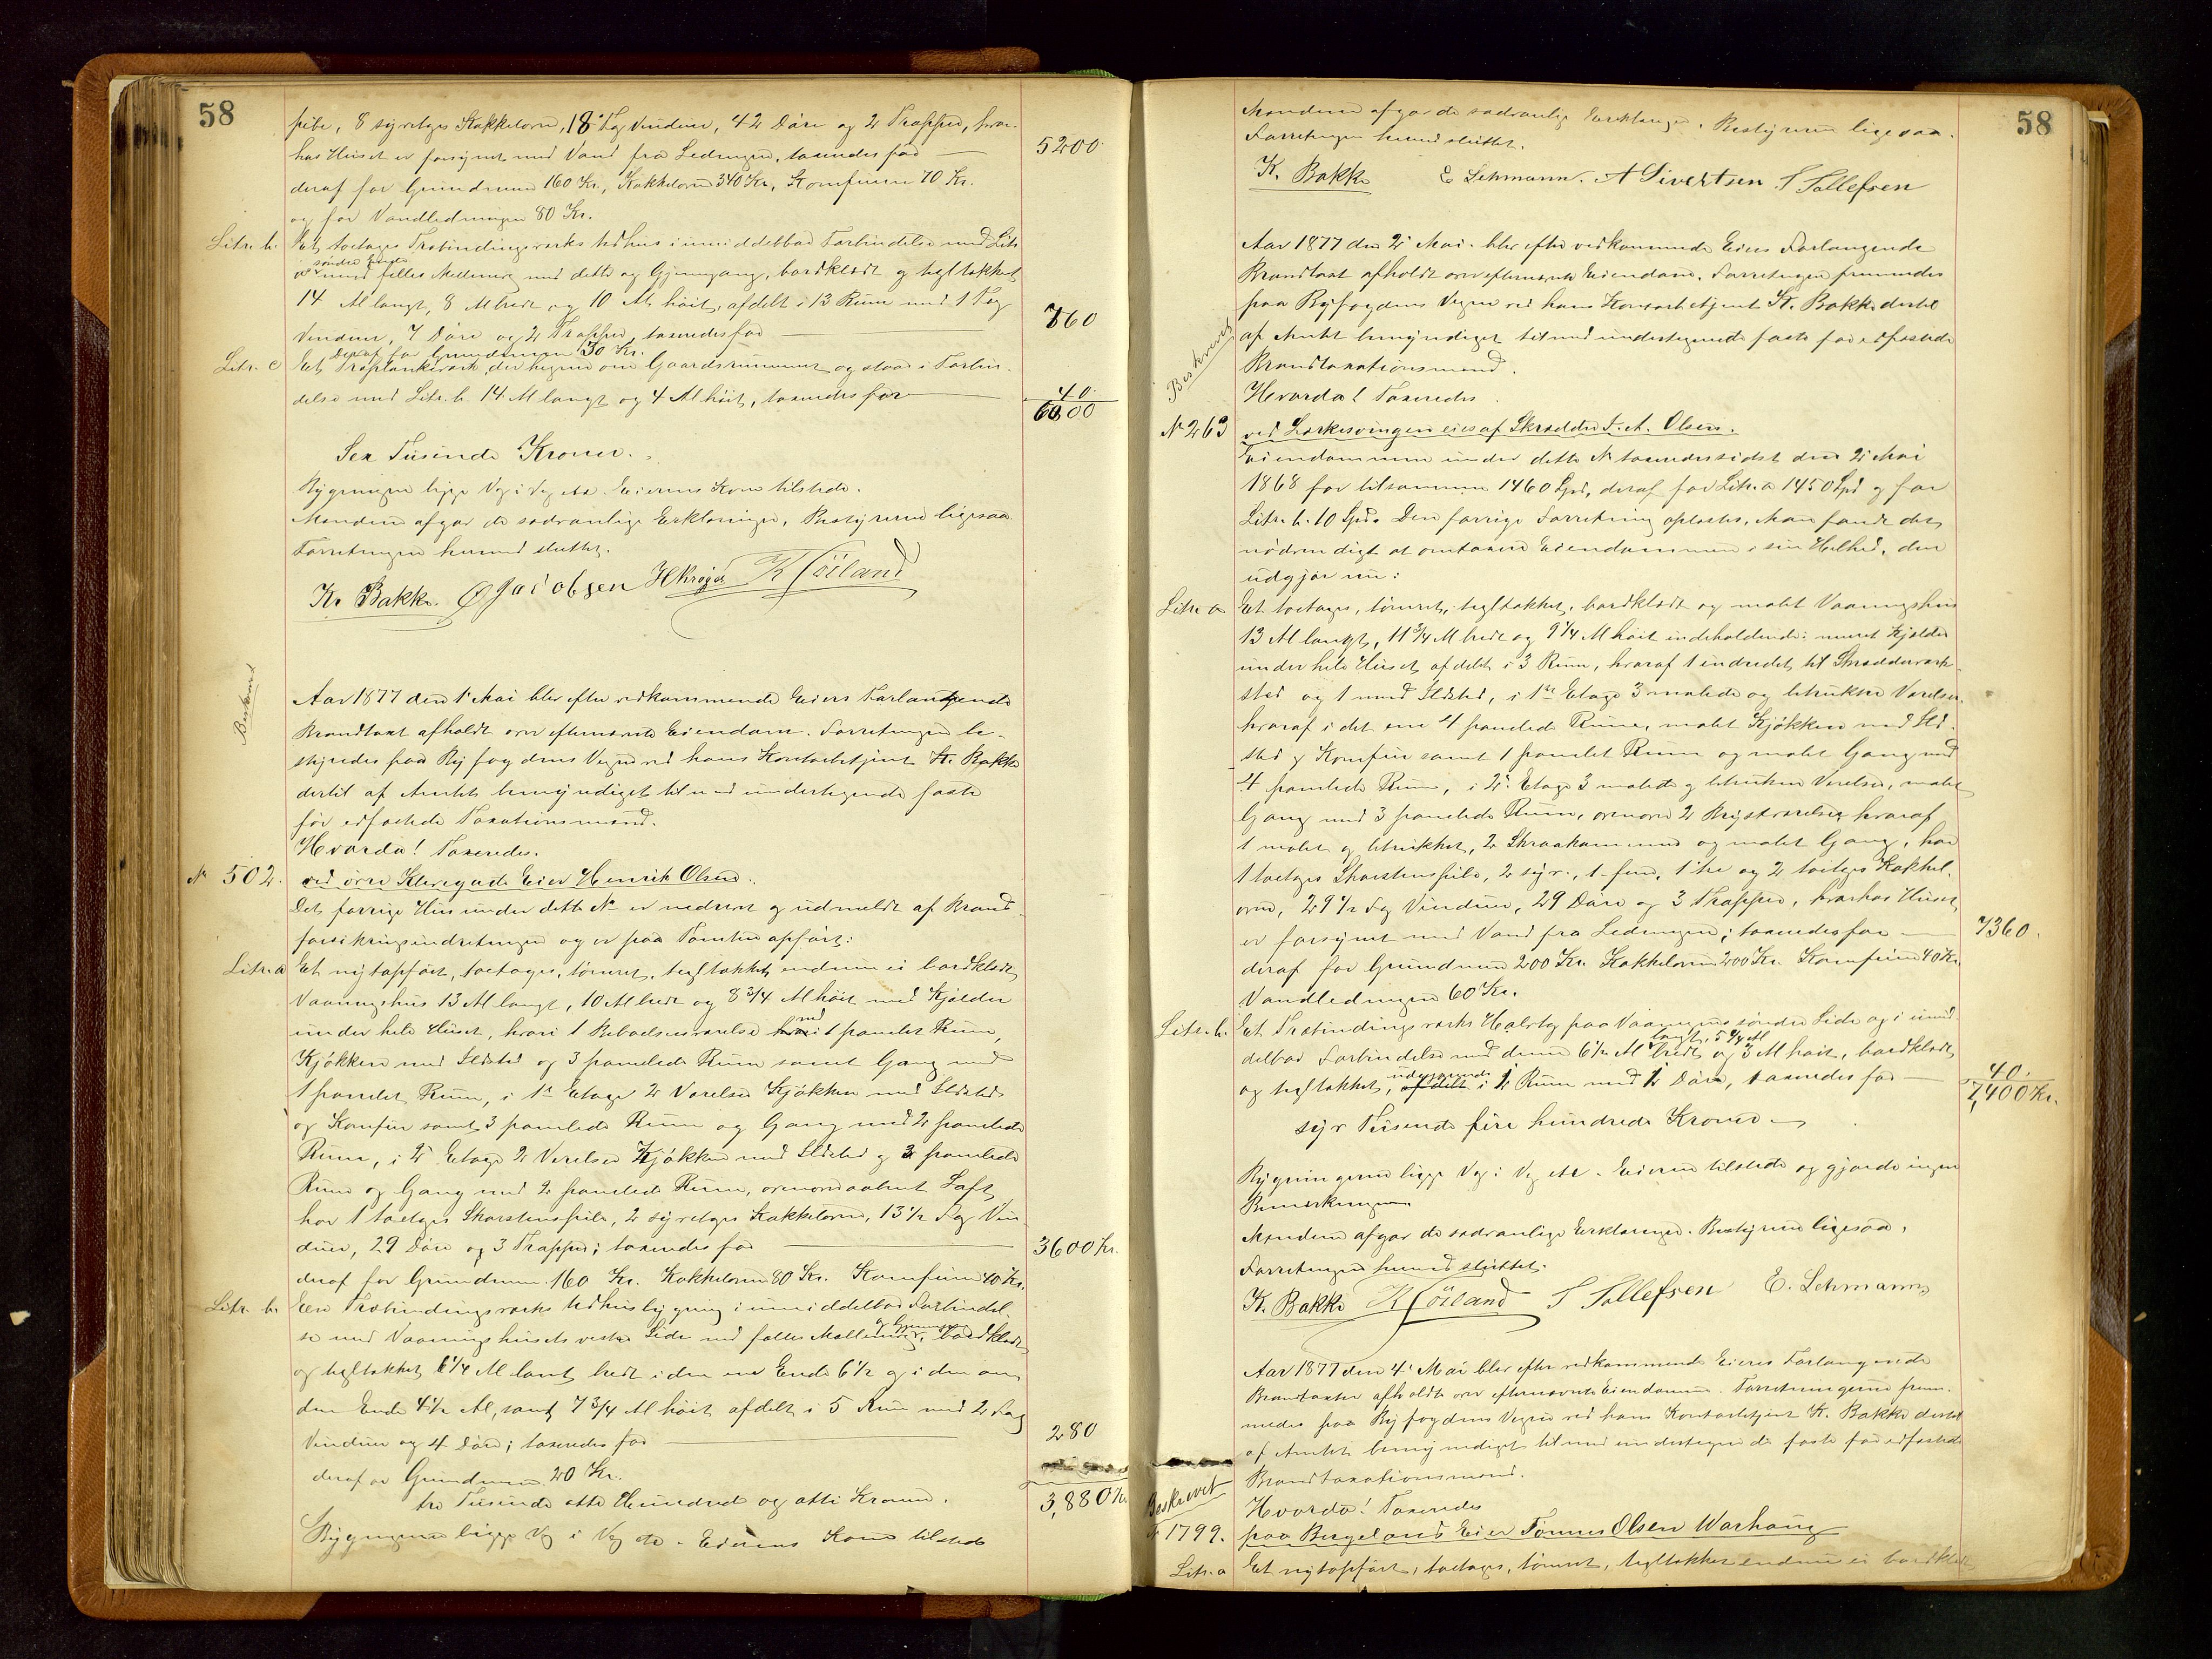 58
pibe, 8 syvetages Kakkelovne, 18 Fag Vinduer, 42 Døre og 2 Trapper, hvor-
hos Huset er forsynet med Vand fra Ledningen, taxeredes for — 5200
deraf for Grundmuren 160 Kr., Kakkelovne 340 Kr., Komfurene 70 Kr.
og for Vandledningen 80 Kr.
Litr. b. Et toetages Træbindingsværks Udhus i umiddelbar Forbindelse med Litr.
a søndre Ende med fælles Mellemvæg med dette og Gjennemgang, bordklædt og tegltækket
14 Al langt, 8 Al bredt og 10 Al høit, afdelt i 13 Rum med 1 Fag
Vinduer, 7 Døre og 2 Trapper, taxeredes for — 760
Deraf for Grundmuren 130 Kr.
Litr. c Et Træplankeværk, der hegner om Gaardsrummet og staar i Forbin-
delse med Litr. b. 14 Al langt og 4 Al høit, taxeredes for — 40.
6000
Sex Tusinde Kroner.
Bygningen ligge Væg i Væg etc. Eierens Kone tilstede.
Mændene afgav de sædvanlige Erklæringer, Bestyreren ligesaa.
Forretningen hermed sluttet.
K. Bakke. O Jacobsen H Krøger K Höiland
Beskrevet
Aar 1877 den 1' Mai blev efter vedkommende Eiers Forlangende
Brandtaxt afholdt over efternævnte Eiendom. Forretningen be-
styredes paa Byfogdens Vegne ved hans Kontorbetjent K. Bakke
dertil af Amtet bemyndiget til med undertegnede faste
før edfæstede Taxationsmænd.
Hvorda! Taxeredes.
No 502. ved øvre Klevegade Eier Henrik Olsen.
Det forrige Hus under dette No er nedrevet og udmeldt af Brand-
forsikringsindretningen og er paa Tomten opført:
Litr. a Et nyt opført, toetages, tømret, tegltækket endnu ei bordklædt
Vaaningshus 13 Al langt, 10 Al bredt og 8 3/4 Al høit med Kjælder
under hele Huset, hvori 1 Beboelsesværelse med 1 panelet Rum,
Kjøkken med Ildsted og 3 panelede Rum samt Gang med
1 panelet Rum, i 1e Etage 2 Værelser Kjøkken med Ildsted
og Komfur samt 3 panelede Rum og Gang med 2 panelede
Rum, i 2' Etage 2 Værelser Kjøkken med Ildsted og 3 panelede
Rum og Gang med 2 panelede Rum, ovenover aabent Loft,
har 1 toetages Skorstenspibe, 2 syvetages Kakkelovne, 13 1/2 Fag Vin-
duer, 29 Døre og 3 Trapper; taxeredes for — 3600 Kr.
deraf for Grundmuren 160 Kr. Kakkelovne 80 Kr. Komfurene 40 Kr.
Litr. b. En Træbindingsværks Udhusbygning i umiddelbar Forbindel-
se med Vaaningshusets vestre Side med fælles Mellemvæg og Gjennemgang, bordklædt
og tegltækket 6 1/4 Al langt bredt i den ene Ende 6 1/2 og i den an-
den Ende 4 1/2 Al, samt 7 3/4 Al høit afdelt i 5 Rum med 2 Fag
Vinduer og 4 Døre; taxeredes for — 280
deraf for Grundmuren 20 Kr.
tre Tusinde otte Hundrede og otti Kroner. 3,880 Kr
Bygningerne ligge Væg i Væg etc. Eierens Kone tilstede
58
Mændene afgav de sædvanlige Erklæringer. Bestyreren ligesaa.
Forretningen hermed sluttet.
K. Bakke E Lehmann. A Sivertsen. T Tollefsen
Beskrevet
Aar 1877 den 2' Mai. blev efter vedkommende Eiers Forlangende
Brandtaxt afholdt over efternævnte Eiendom. Forretningen fremmedes
paa Byfogdens Vegne ved hans Kontorbetjent K. Bakke dertil
af Amtet bemyndiget til med undertegnede faste før edfæstede
Brandtaxationsmænd.
Hvorda! Taxeredes
No 263 ved Lærkesvingen eies af Skrædder S. A. Olsen.
Eiendommen under dette No taxeredes sidst den 2' Mai
1868 for tilsammen 1460 Spd, deraf for Litr. a 1450 Spd og for
Litr. b. 10 Spd. Den forrige Forretning oplæstes. Man fandt det
nødvendigt at omtaxere Eiendommen i sin Helhed, den
udgjør nu:
Litr. a Et toetages, tømret, tegltækket, bordklædt og malet Vaaningshus
13 Al langt, 11 3/4 Al bredt og 9 1/4 Al høit indeholdende: muret Kjælder
under hele Huset afdelt i 3 Rum, hvoraf 1 indredet til Skrædderværk-
sted og 1 med Ildsted, i 1ste Etage 3 malede og betrukne Værelser
hvoraf i det ene 4 panelede Rum, malet Kjøkken med Ild-
sted og Komfur samt 1 panelet Rum og malet Gang med
4 panelede Rum, i 2' Etage 3 malede og betrukne Værelser, malet
Gang med 3 panelede Rum, ovenover 2 Kvistværelser hvoraf
1 malet og betrukket, 2 Skraakammere og malet Gang, har
1 toetages Skorstenspibe, 2 syv-, 1 fem, 1 tre og 2 toetages Kakkel-
ovne, 29 1/2 Fag Vinduer, 29 Døre og 3 Trapper, hvorhos Huset
er forsynet med Vand fra Ledningen; taxeredes for — 7360.
deraf for Grundmuren 200 Kr. Kakkelovne 200 Kr. Komfuren 40 Kr.
Vandledningen 60 Kr.
Litr. b. Et Træbindingsværks Halvtag paa Vaaningens søndre Side og i umid-
delbar Forbindelse med denne 6 1/2 Al langt, 5 1/4 Al bredt og 3 Al høit, bordklædt
og tegltækket, udgjørende 1 Rum med 1 Dør, taxeredes for — 40.
7,400 Kr.
syv Tusinde fire hundrede Kroner
Bygningerne ligge Væg i Væg etc. Eieren tilstede og gjorde ingen
Bemærkninger
Mændene afgav de sædvanlige Erklæringer. Bestyreren ligesaa.
Forretningen hermed sluttet.
K. Bakke K Höiland T Tollefsen E. Lehmann
Aar 1877 den 4' Mai blev efter vedkommende Eieres Forlangende
Brandtaxter afholdt over efternævnte Eiendomme. Forretningerne frem-
medes paa Byfogdens Vegne ved hans Kontorbetjent K. Bakke dertil
af Amtet bemyndiget til med undertegnede faste før edfæstede
Brandtaxationsmænd.
Beskrevet
Hvorda! Taxeredes
No 1799. paa Bergeland Eier Tønnes Olsen Warhaug
Litr. a Et nyt opført, toetages, tømret, tegltækket endnu ei bordklædt